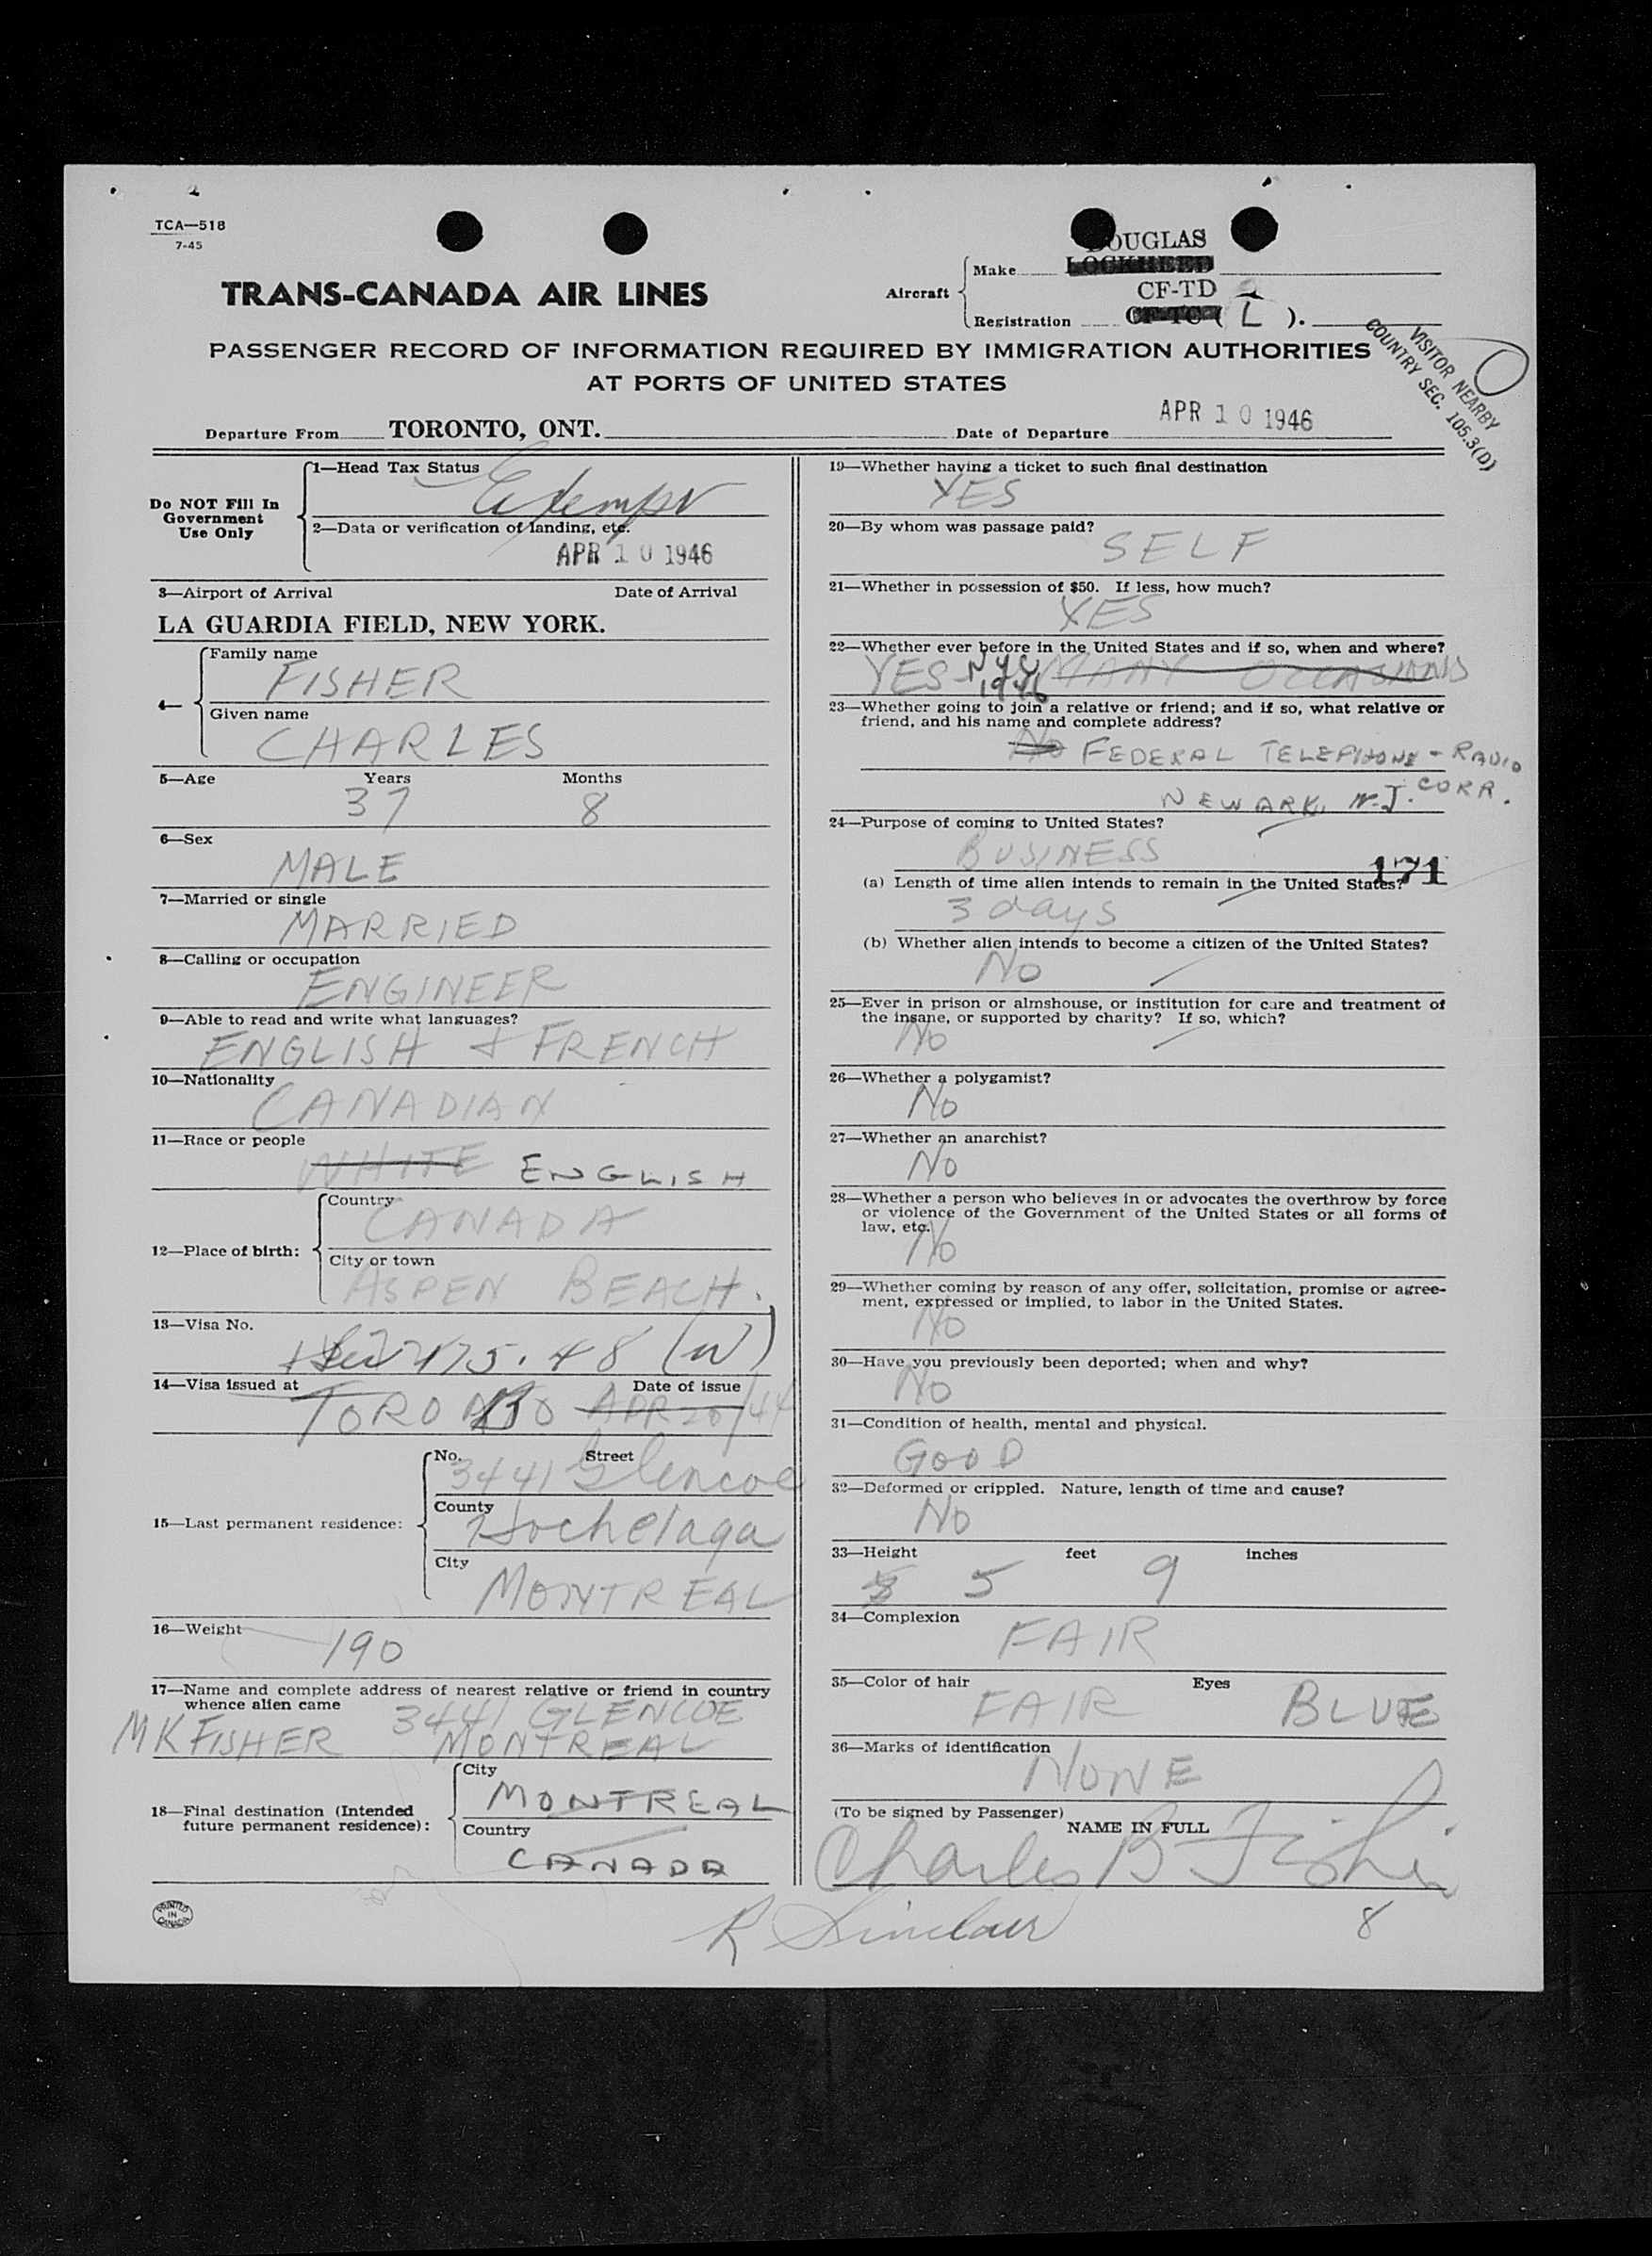 TCA—518
7-45
DOUGLAS
Make LOCKHEED
TRANS-CANADA AIR LINES
Aircraft
CF-TD
Registration CF-TC ( L ).
PASSENGER RECORD OF INFORMATION REQUIRED BY IMMIGRATION AUTHORITIES
AT PORTS OF UNITED STATES
VISITOR NEARBY
COUNTRY SEC. 105.3(D)
Departure From TORONTO, ONT.
Date of Departure APR 10 1946
Do NOT Fill In
Government
Use Only
1—Head Tax Status
Exempt
2—Data or verification of landing, etc.
APR 10 1946
3—Airport of Arrival Date of Arrival
LA GUARDIA FIELD, NEW YORK.
4—
Family name
FISHER
Given name
CHARLES
5—Age Years Months
37 8
6—Sex
MALE
7—Married or single
MARRIED
8—Calling or occupation
ENGINEER
9—Able to read and write what languages?
ENGLISH & FRENCH
10—Nationality
CANADIAN
11—Race or people
WHITE ENGLISH
12—Place of birth:
Country
CANADA
City or town
ASPEN BEACH.
13—Visa No.
175.48 (W)
14—Visa issued at Date of issue
TORONTO APR 20/44
15—Last permanent residence:
No. Street
3441 Glencoe
County
Hochelaga
City
MONTREAL
16—Weight
190
17—Name and complete address of nearest relative or friend in country
whence alien came
MK FISHER 3441 GLENCOE
MONTREAL
18—Final destination (Intended
future permanent residence):
City
MONTREAL
Country
CANADA
PRINTED
IN
CANADA
19—Whether having a ticket to such final destination
YES
20—By whom was passage paid?
SELF
21—Whether in possession of $50. If less, how much?
YES
22—Whether ever before in the United States and if so, when and where?
YES - NYC MANY OCCASIONS
1946
23—Whether going to join a relative or friend; and if so, what relative or
friend, and his name and complete address?
No FEDERAL TELEPHONE - RADIO
CORR.
NEWARK, N.J.
24—Purpose of coming to United States?
BUSINESS
171
(a) Length of time alien intends to remain in the United States?
3 days
(b) Whether alien intends to become a citizen of the United States?
No
25—Ever in prison or almshouse, or institution for care and treatment of
the insane, or supported by charity? If so, which?
No
26—Whether a polygamist?
No
27—Whether an anarchist?
No
28—Whether a person who believes in or advocates the overthrow by force
or violence of the Government of the United States or all forms of
law, etc.
No
29—Whether coming by reason of any offer, solicitation, promise or agree-
ment, expressed or implied, to labor in the United States.
No
30—Have you previously been deported; when and why?
No
31—Condition of health, mental and physical.
GOOD
32—Deformed or crippled. Nature, length of time and cause?
No
33—Height feet inches
5 9
34—Complexion
FAIR
35—Color of hair Eyes
FAIR BLUE
36—Marks of identification
NONE
(To be signed by Passenger)
NAME IN FULL
Charles B Fisher
R Sinclair
8